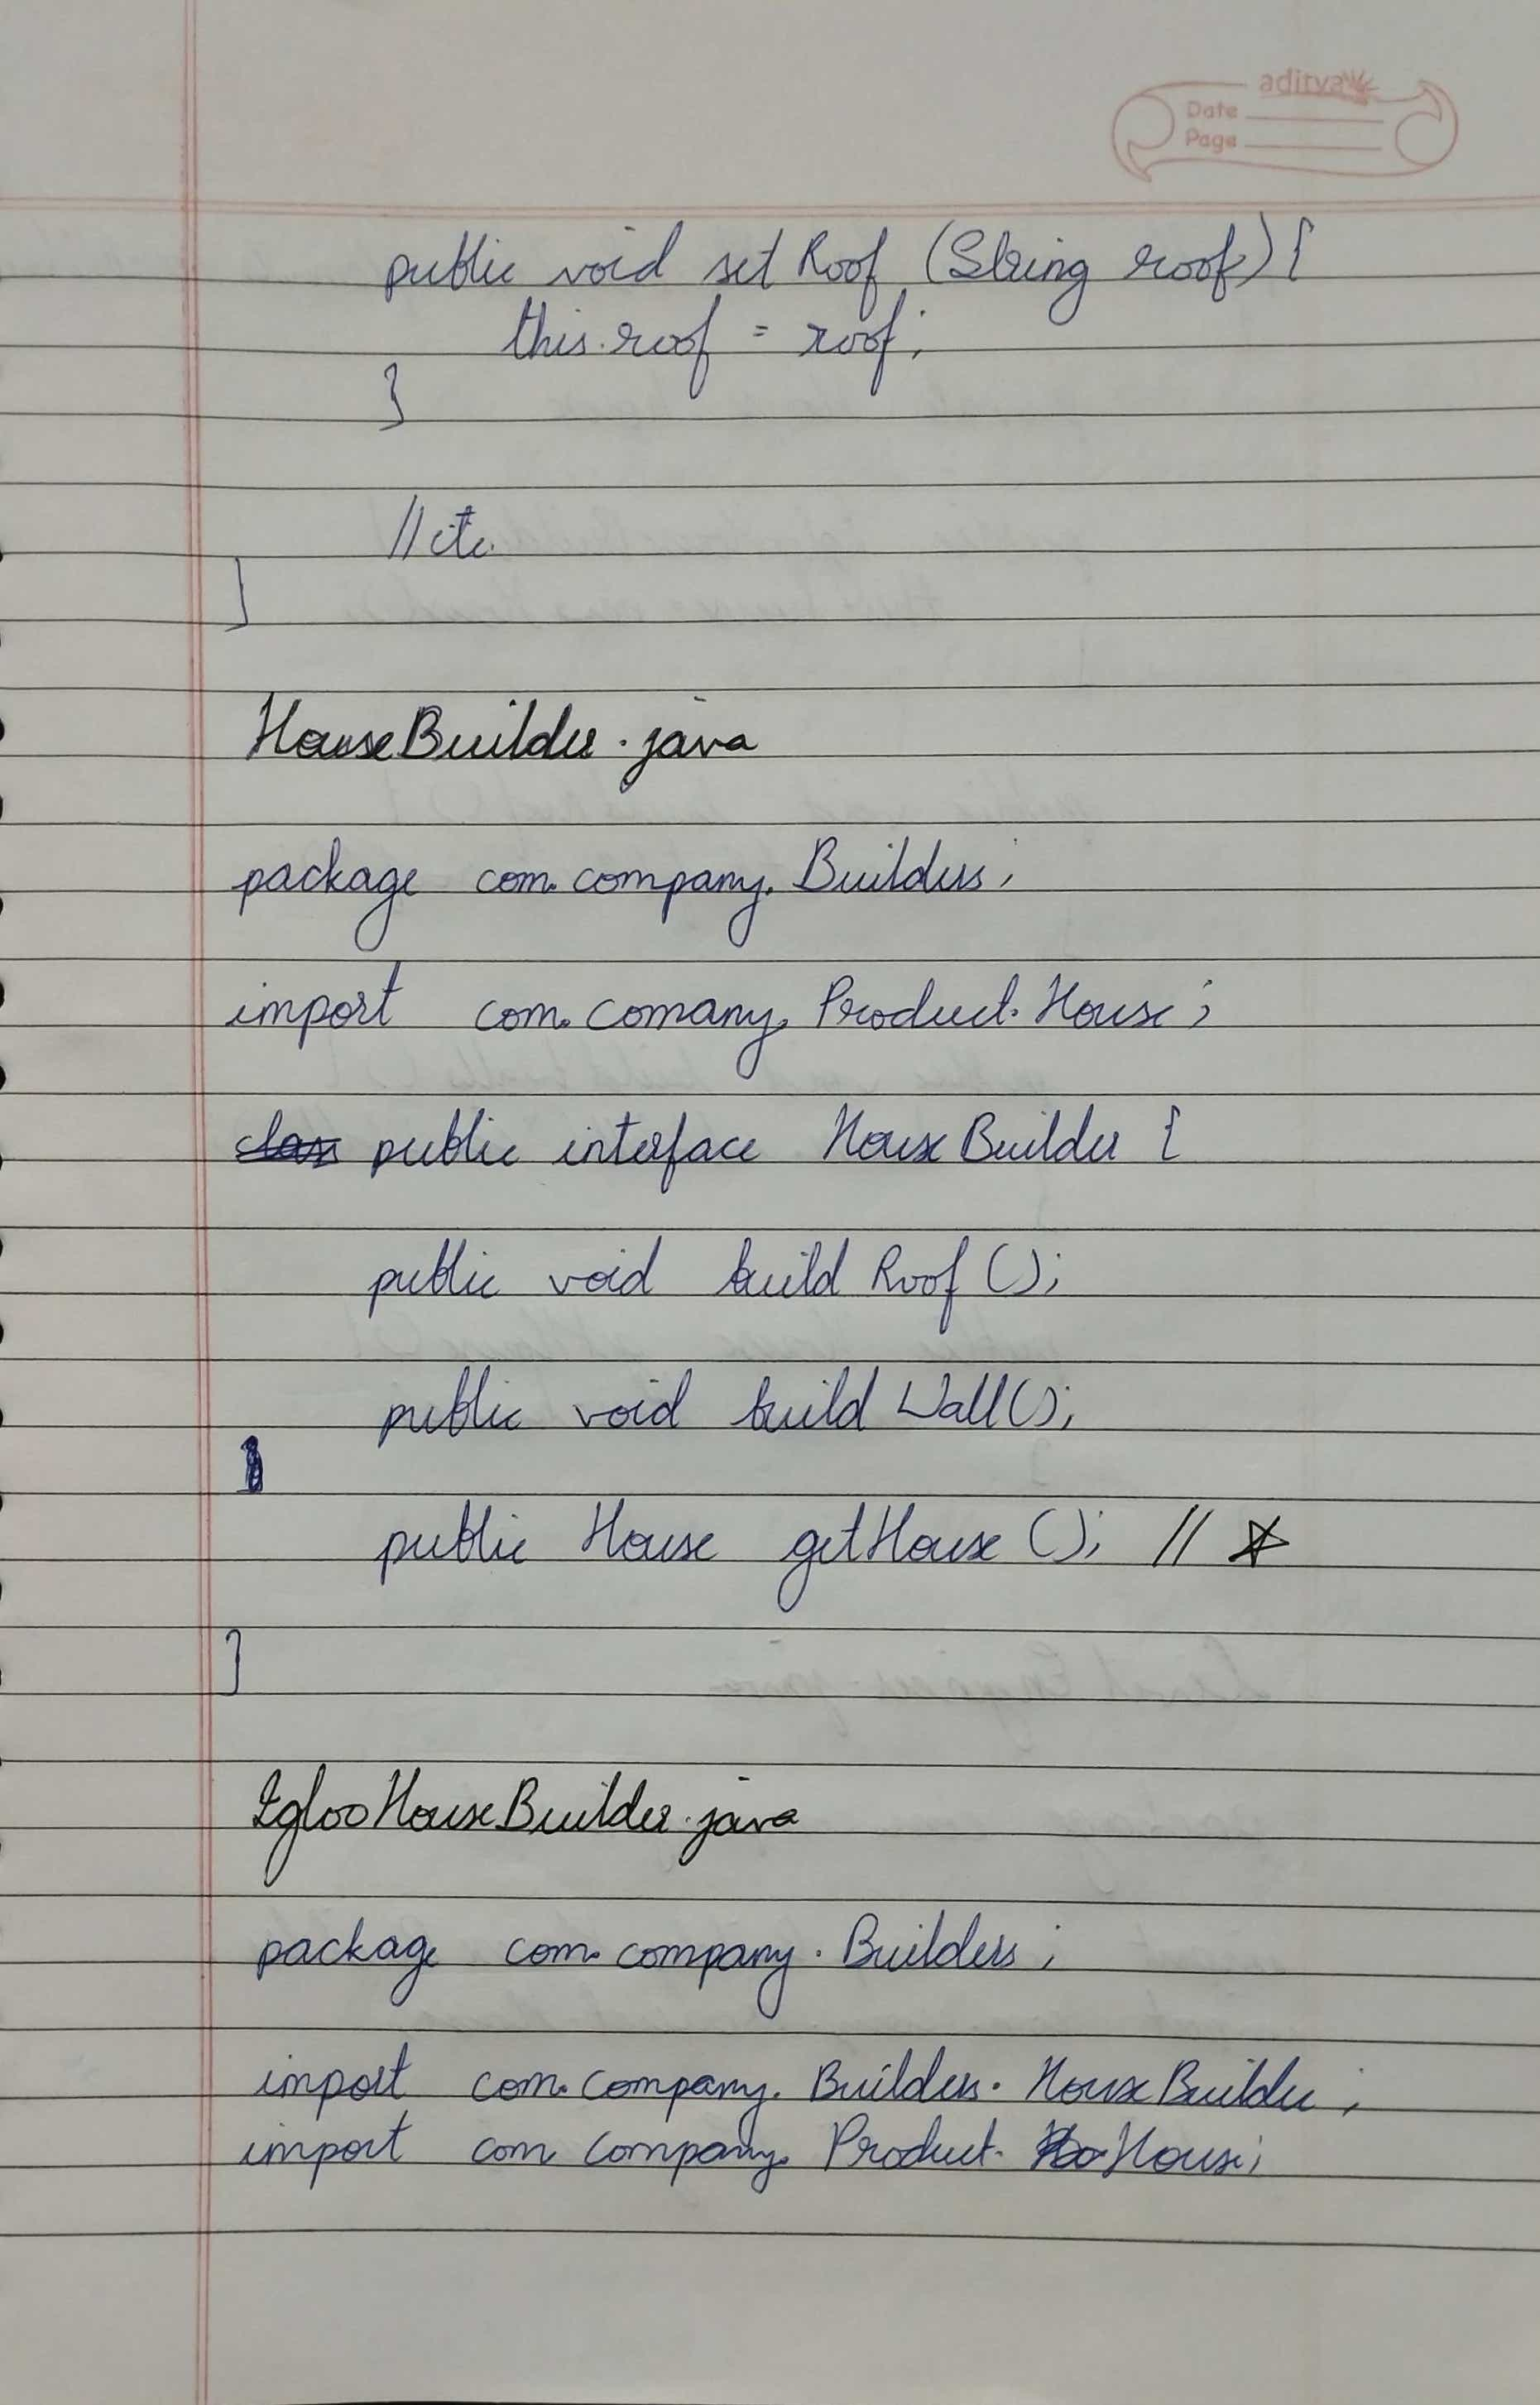 aditya
Date
Page
public void setRoof (String roof) {
this.roof = roof;
}
// etc.
}
HouseBuilder.java
package com.company.Builders;
import com.comany.Product.House;
class public interface HouseBuilder {
public void buildRoof ();
public void buildWall();
}
public House getHouse (); // ☆
}
IglooHouseBuilder.java
package com.company.Builders;
import com.company.Builders.HouseBuilder;
import com company.Product.House;